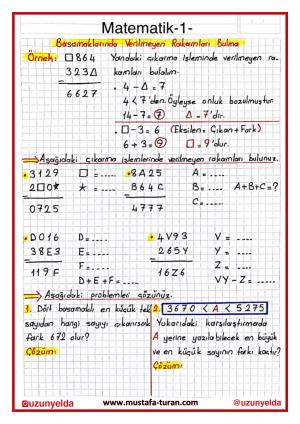 Matematik-1-
Basamaklarında Verilmeyen Rakamları Bulma
Örnek: □864 Yandaki çıkarma işleminde verilmeyen ra-
323△ kamları bulalım.
6627 . 4-△=7
4<7'den. Öyleyse onluk bozulmuştur.
14-7=7 △=7'dir.
. □-3=6 (Eksilen: Çıkan+Fark)
6+3=9 □=9'dur.
Aşağıdaki çıkarma işlemlerinde verilmeyen rakamları bulunuz.
3129 □=---- 8A25 A=----
2□0* *=---- B64C B=---- A+B+C=?
0725 4777 C=----
D016 D=---- 4V93 V=----
38E3 E=---- 265Y Y=----
119F F=---- 16Z6 Z=----
D+E+F=---- VY-Z=----
Aşağıdaki problemleri çözünüz.
1. Dört basamaklı en küçük tek
sayıdan hangi sayıyı çıkarırsak
fark 672 olur?
Çözüm:
2. 3670 < A < 5275
Yukarıdaki karşılaştırmada
A yerine yazılabilecek en büyük
ve en küçük sayının farkı kaçtır?
Çözüm:
@uzunyelda www.mustafa-turan.com @uzunyelda